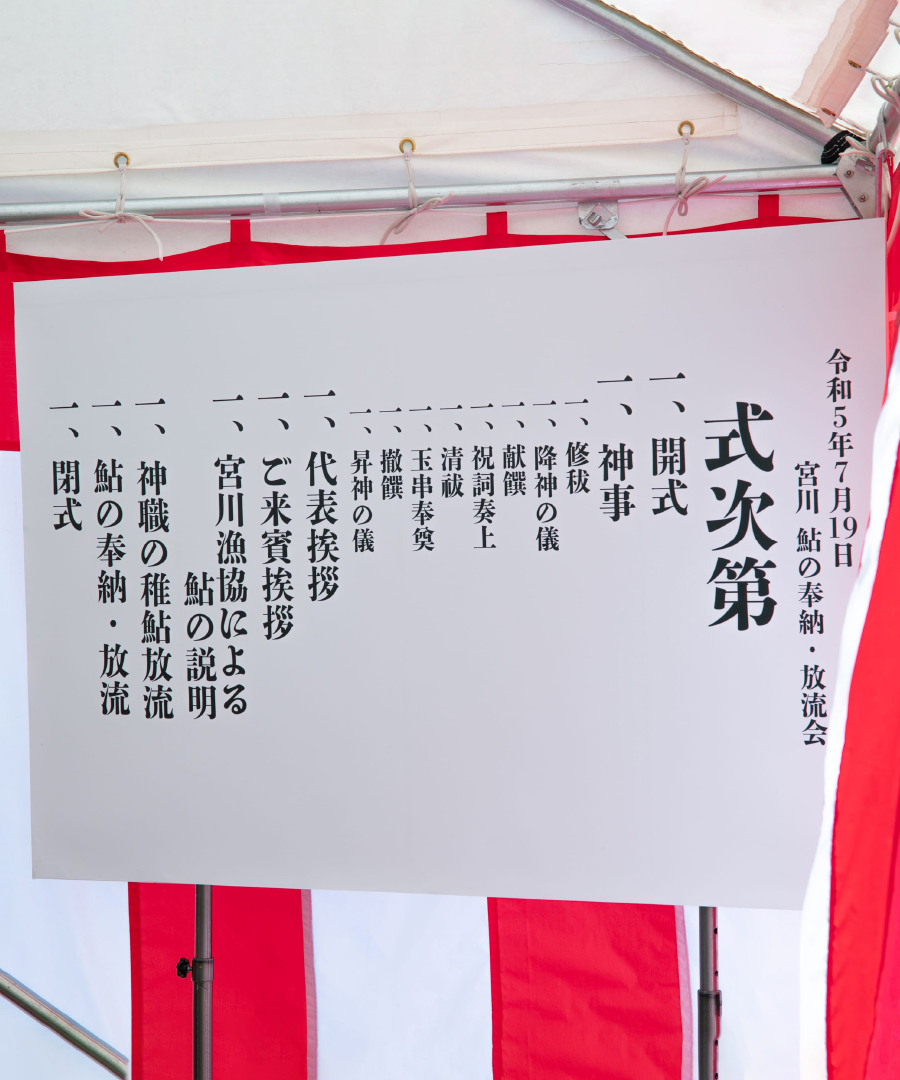 令和5年7月19日
宮川 鮎の奉納・放流会
式次第
一、開式
一、神事
一、修祓
一、降神の儀
一、献饌
一、祝詞奏上
一、清祓
一、玉串奉奠
一、撤饌
一、昇神の儀
一、代表挨拶
一、ご来賓挨拶
一、宮川漁協による
鮎の説明
一、神職の稚鮎放流
一、鮎の奉納・放流
一、閉式